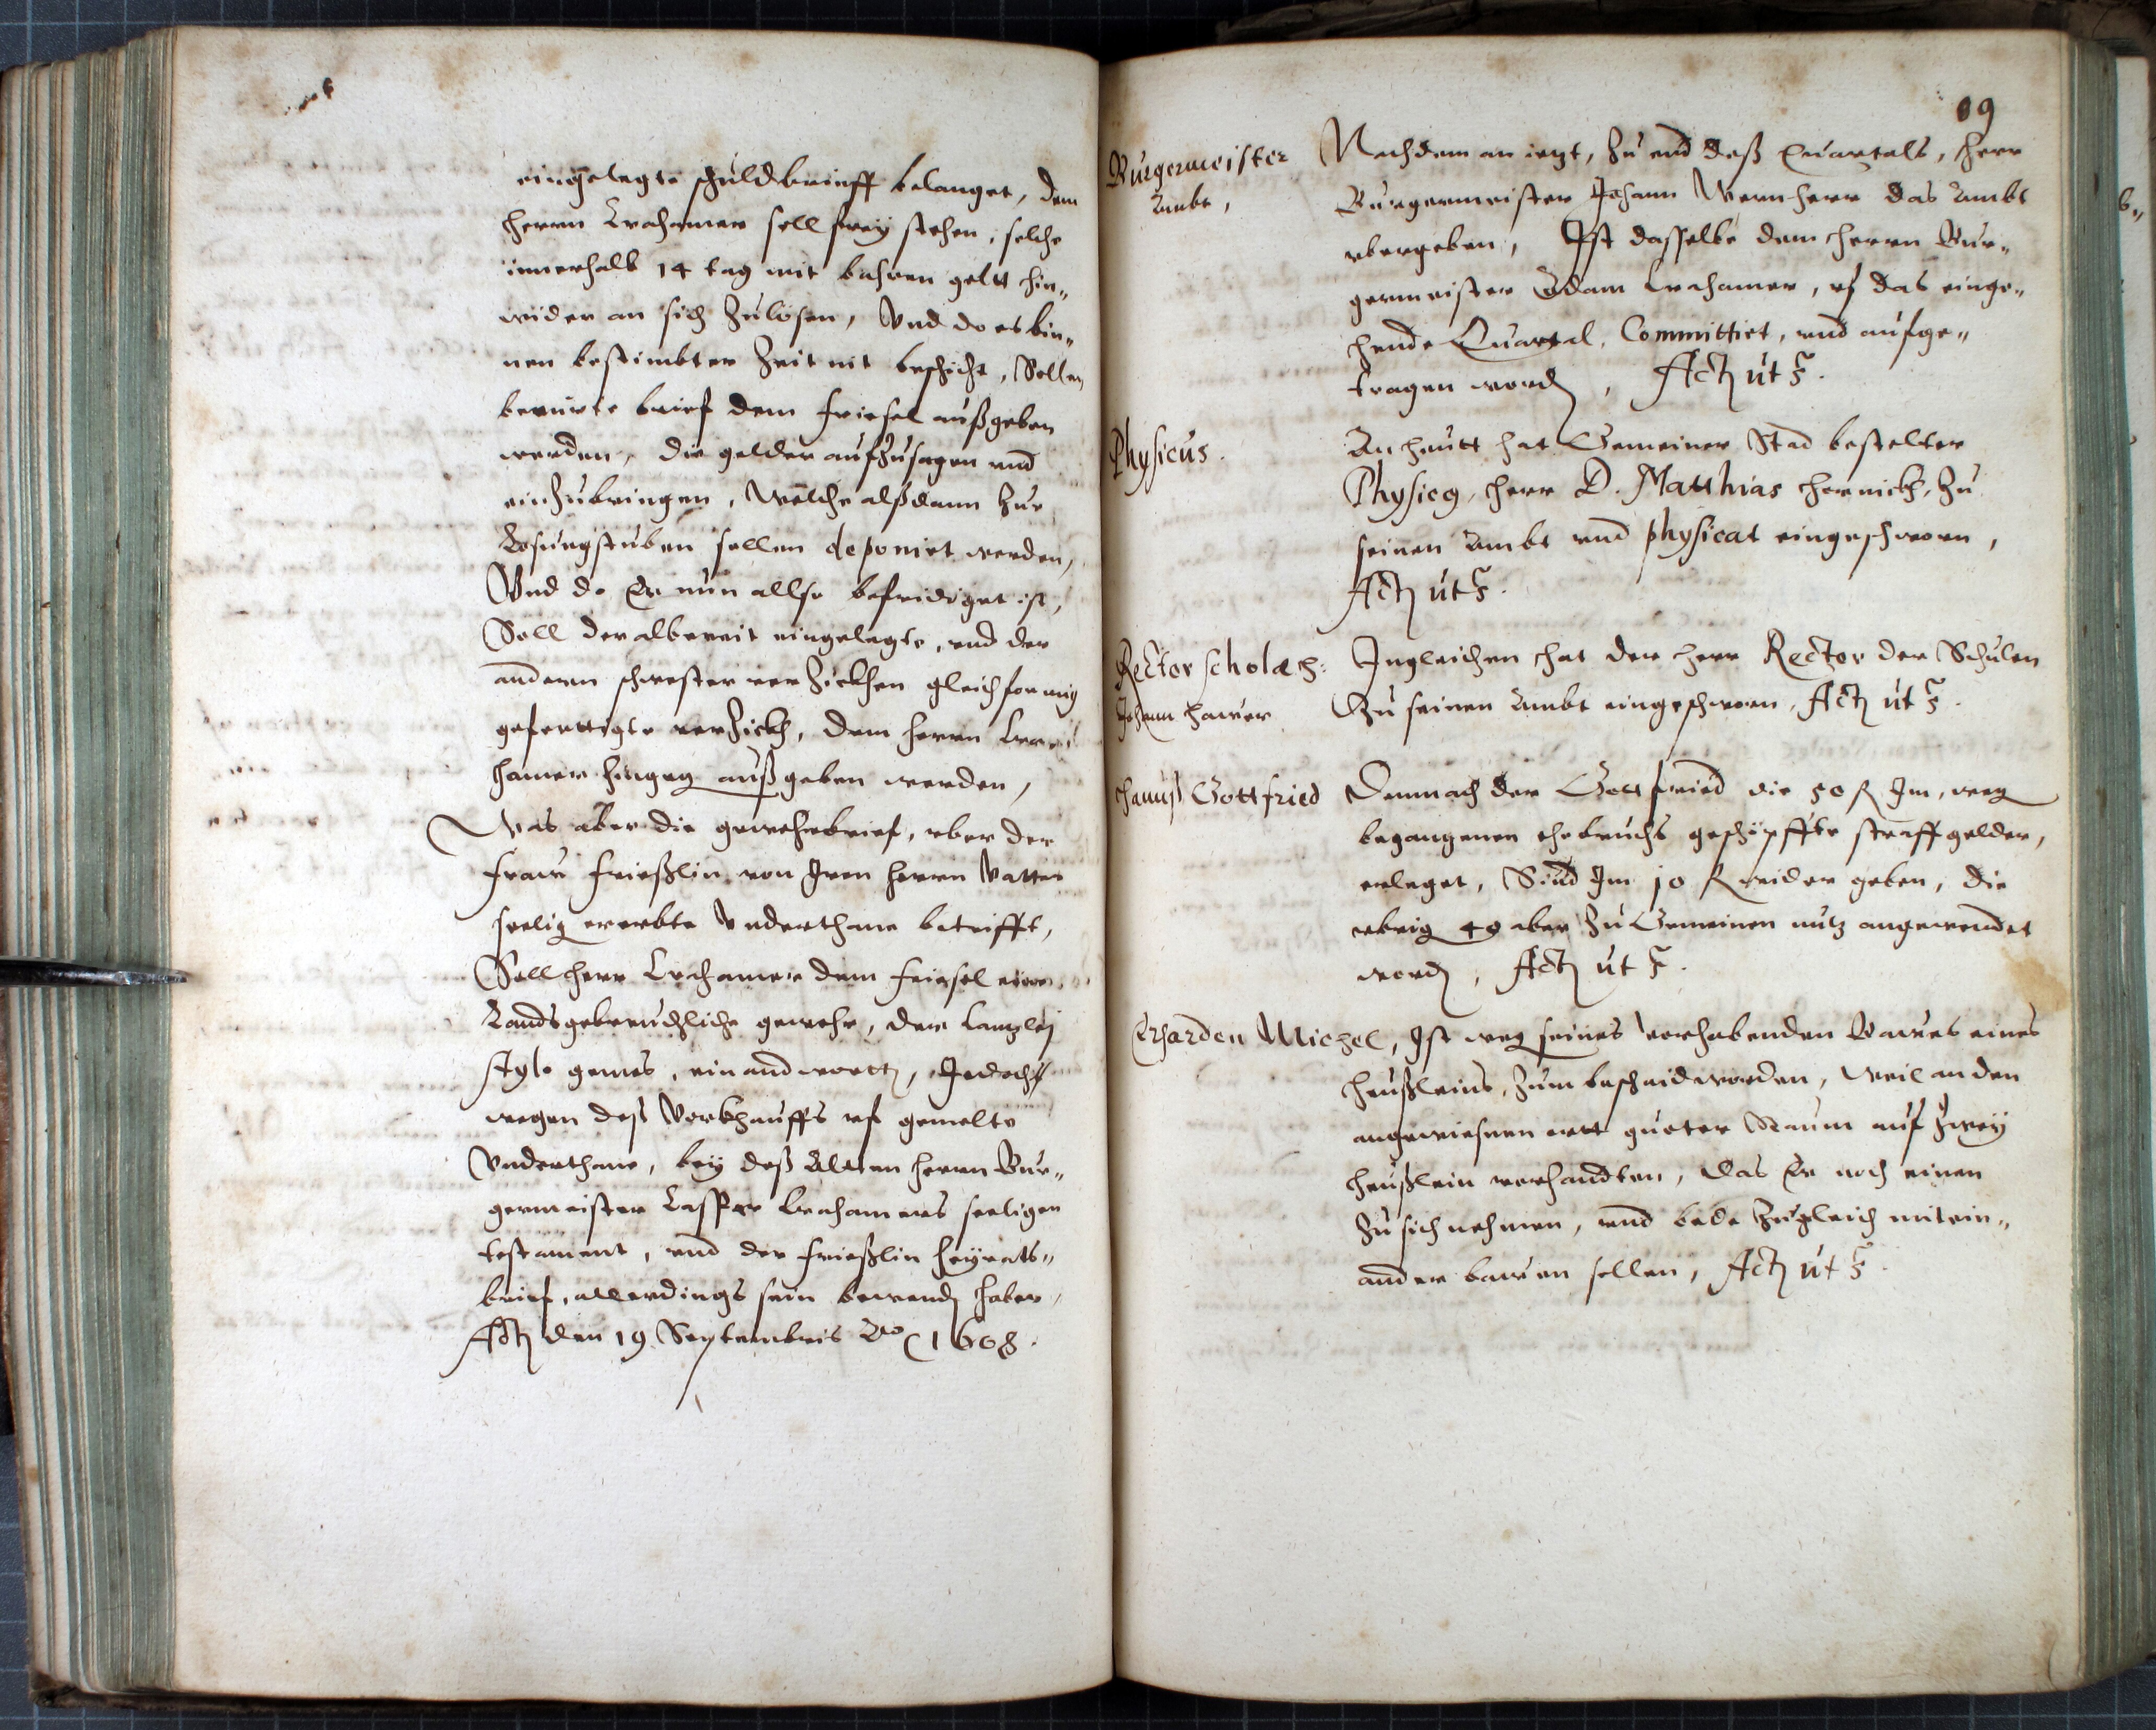 eingelegte schuldbrieff belanget, dem
herrn Crahamer soll frey stehen, solche
innerhalb 14 tag mit bahren gelt hin„
wider an sich Zulösen, Vnd do es bin„
nen bestimbter Zeit nit beschicht, Sollen
berurte brief dem Friesel außgeben
werden, die gelder aufZusagen vnd
einZubringen, Welche alßdann Zur
Losungstuben sollen deponirt werden,
Vnd do Er nun allso befridiget ist,
Soll der albereit eingelegte, vnd der
andern schwester verZickhen gleichformig
gefertigte verZickh, dem herrn Cra
hamer hingeg außgeben werden,
Was aber die gewehrbrief, vber der
Fraw Frießlin von Iren herrn Vatter
seelig ererbte Vnderthane betrifft,
Soll herr Crahamer dem Friesel eine
Landsgebreuchliche gewehr, der Canzley
stylo gemes, einandwortt, Jedoch
wegen deß Vorkhauffs vf gemelte
Vnderthane, bey deß Alten herrn Bur„
germeister Casper Crahamers seeligen
testament, vnd der Frießlin heyrats„
brief, allerdings sein bewend haben,
Act den 19 Septembris Ao 1608.
89
Burgermeister
Ambt,
Nachdem an iezt, Zu end deß Quartals, herr
Burgermeister Johann Wernherr das Ambt
vbergeben, Ist dasselbe dem herrn Bur„
germeister Adam Crahamer, vf das einge„
hende Quartal, Committirt, vnd aufge„
tragen word, Act ut s.
Physicus.
An heutt hat Gemeiner Stad bestelter
Physicg, herr D. Matthias hernickh, Zu
seinen Ambt vnd physicat eingeschworn,
Act ut s.
Rector scholae
Johann hawer
Ingleichen hat der herr Rector der Schulen
Zu seinen Ambt eingeschworn, Act ut s.
Hannß Gottfried
Demnach der Gottfried die 50 R Im, weg
begangenen ehebruchs geschöpffte straffgelder,
erleget, Sind Im 10 R wider geben, die
vbrig 40 aber Zu Gemeinen nutz angewendet
word, Act ut s.
Erharden Michel, Ist weg seines vorhabenden Bawes eines
heußleins, Zum bescheid worden, weil an den
angewiesenen ortt guter Raum auf Zwey
heußlein verhandten, das Er noch einen
Zu sich nehmen, vnd bede Zugleich mitein„
ander bawen sollen, Act ut s.